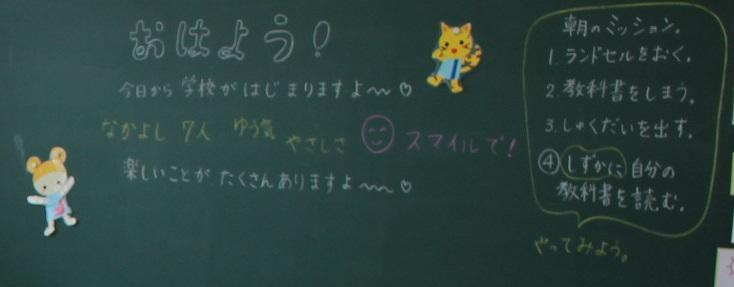 おはよう!
今日から学校がはじまりますよ〜〜♡
なかよし 7人 ゆう気 やさしさ スマイルで!
楽しいことがたくさんありますよ〜〜♡
朝のミッション。
1. ランドセルをおく。
2. 教科書をしまう。
3. しゅくだいを出す。
④ しずかに自分の
教科書を読む。
やってみよう。